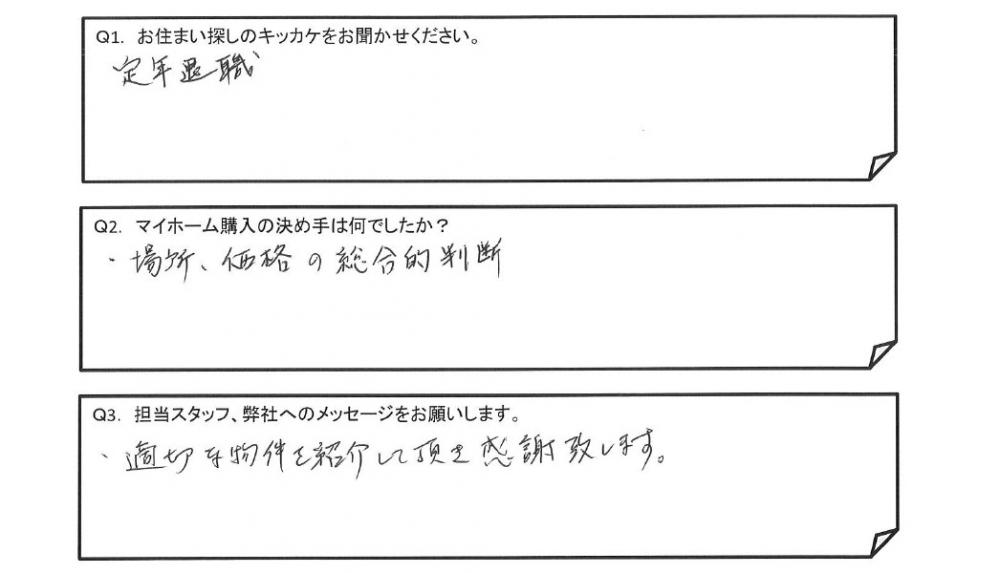 Q1. お住まい探しのキッカケをお聞かせください。
定年退職
Q2. マイホーム購入の決め手は何でしたか？
・場所、価格の総合的判断
Q3. 担当スタッフ、弊社へのメッセージをお願いします。
・適切な物件を紹介して頂き感謝致します。